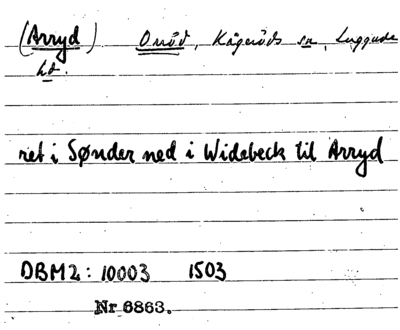 (Arryd) Onröd, Kågeröds sn, Luggude
hd.
ret i Sønder ned i Widebeck til Arryd
DBM2: 10003 1503
Nr 6863.